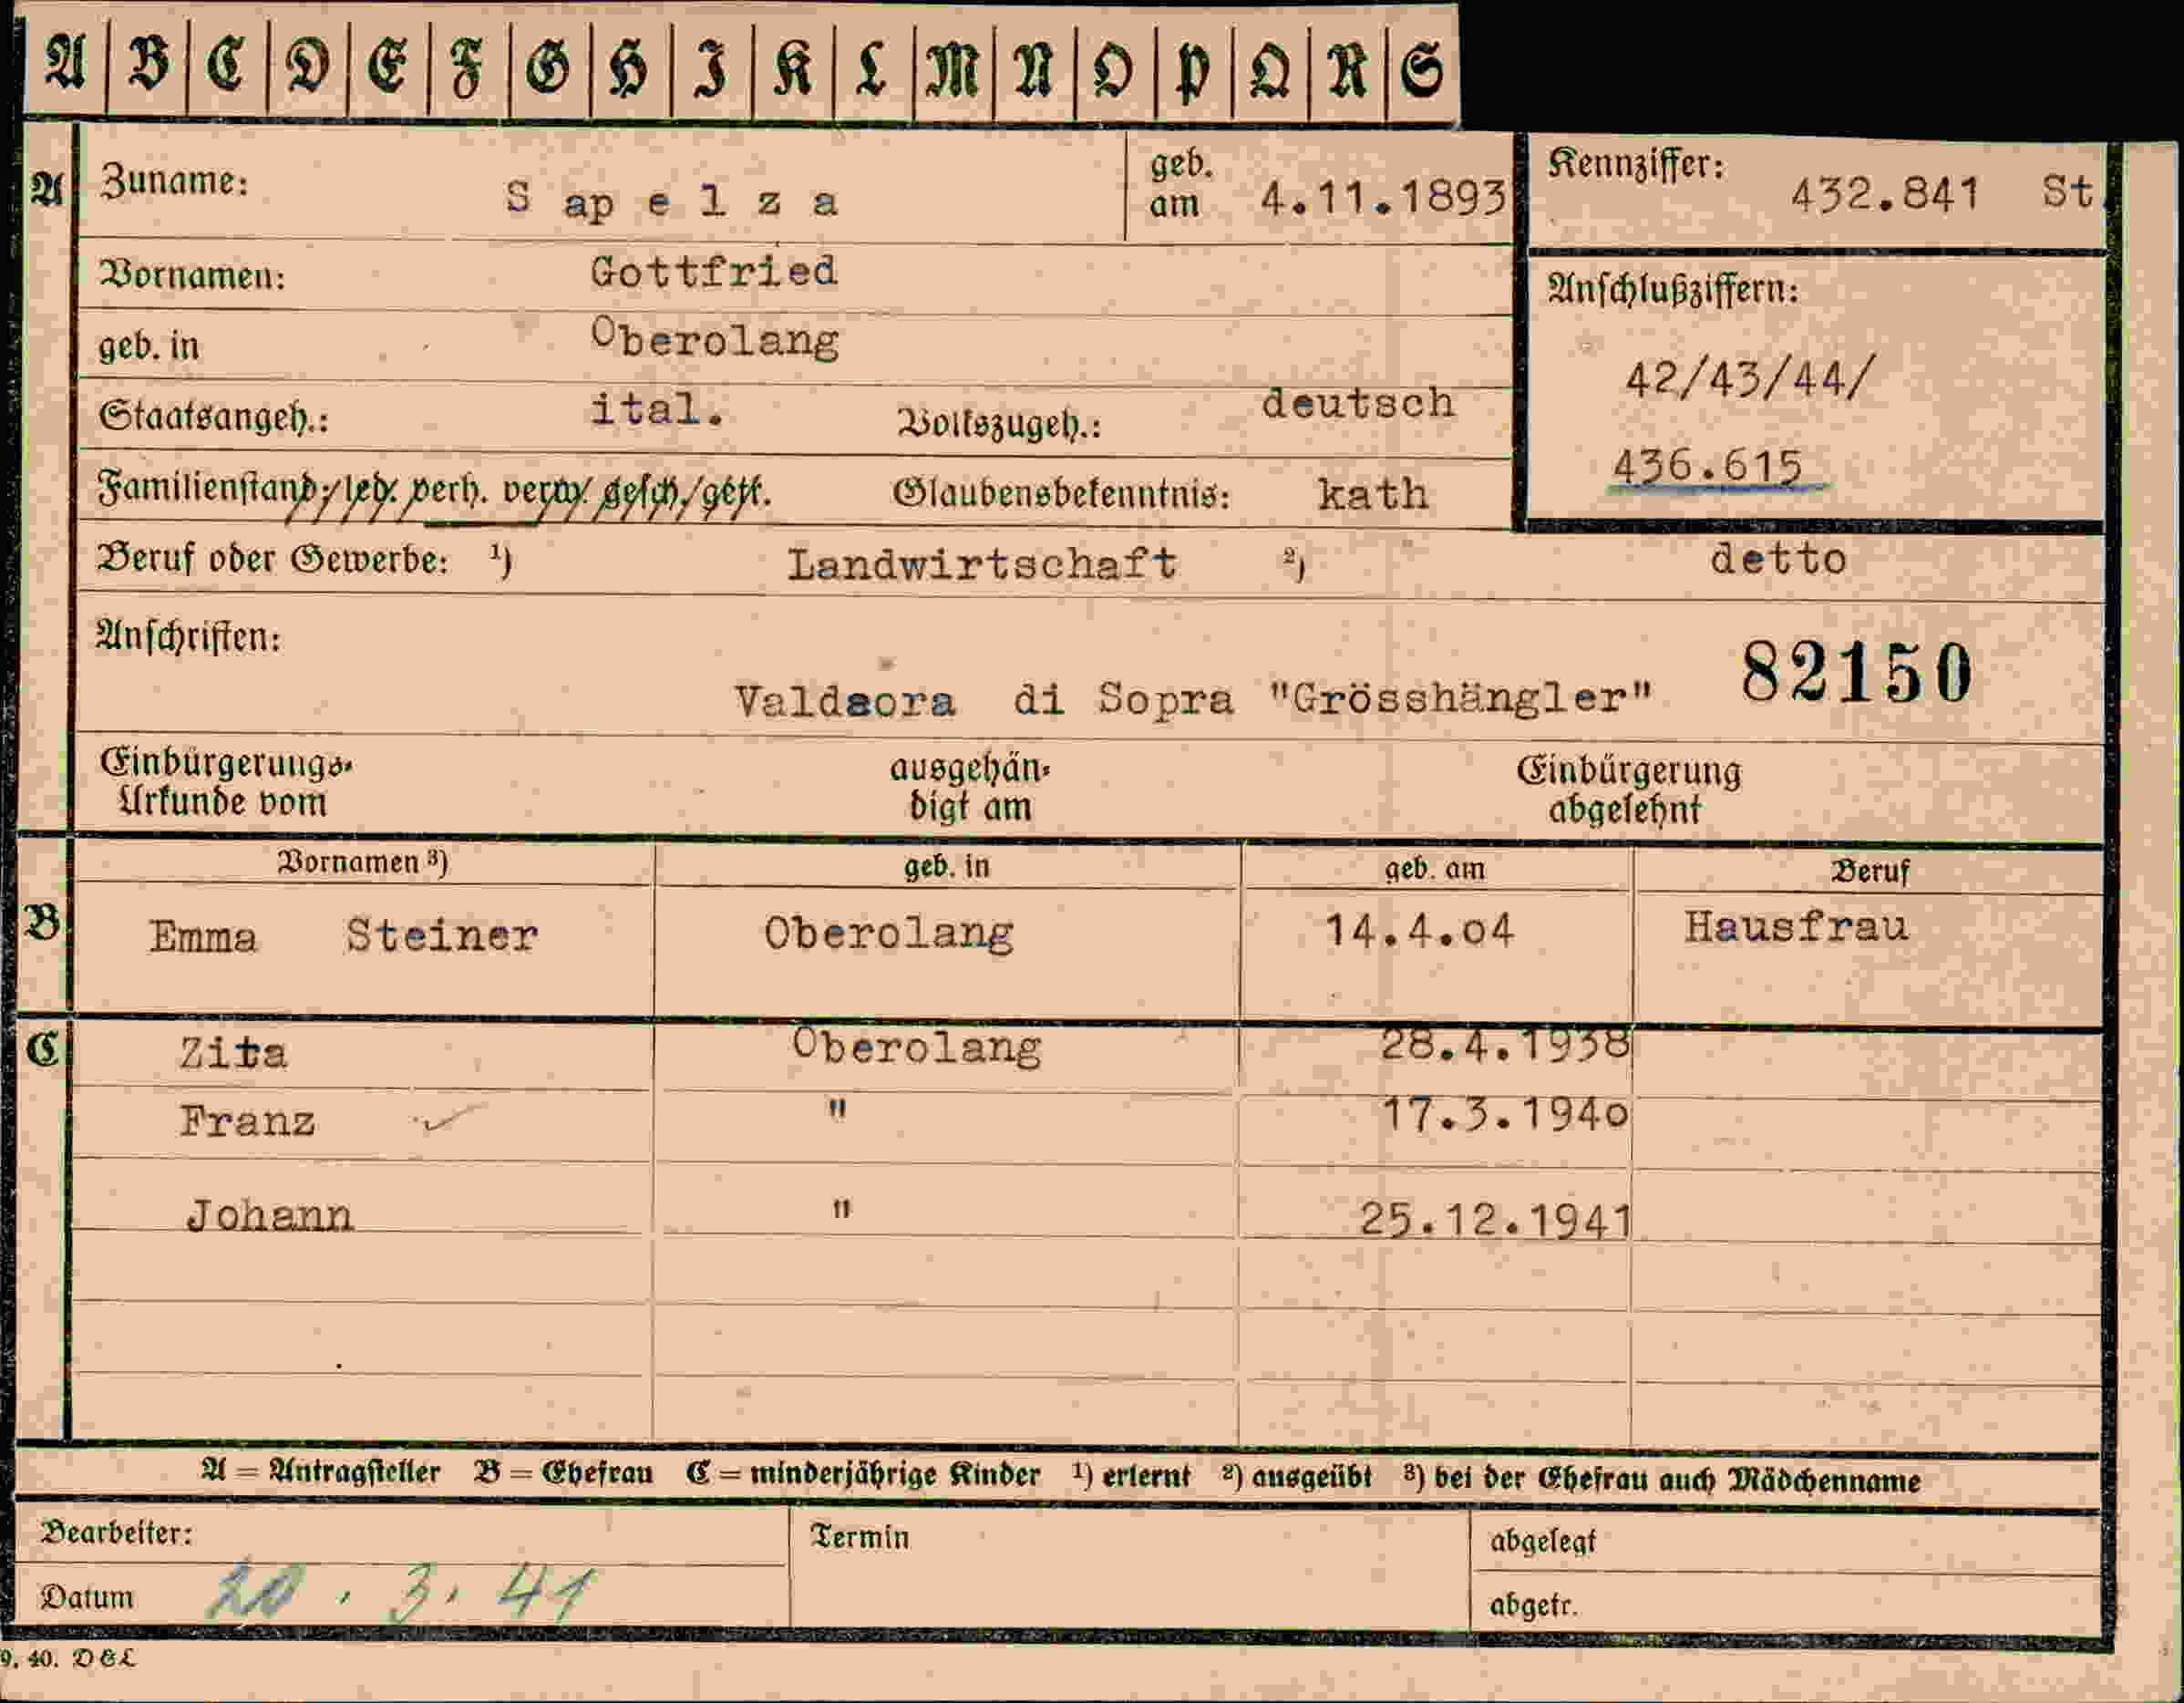 A B C D E F G H I K L M N O P Q R S
A Zuname: Sapelza geb. am 4.11.1893 Kennziffer: 432.841 St.
Vornamen: Gottfried
Anschlußziffern:
geb. in Oberolang
42/43/44/
Staatsangeh.: ital. Volkszugeh.: deutsch
436.615
Familienstand: led. verh. verw. gesch./getr. Glaubensbekenntnis: kath
Beruf oder Gewerbe: 1) Landwirtschaft 2) detto
Anschriften:
Valdaora di Sopra "Grösshängler" 82150
Einbürgerungs- ausgehän- Einbürgerung
Urkunde vom digt am abgelehnt
Vornamen 3) geb. in geb. am Beruf
B Emma Steiner Oberolang 14.4.o4 Hausfrau
C Zita Oberolang 28.4.1938
Franz " 17.3.194o
Johann " 25.12.1941
A = Antragsteller B = Ehefrau C = minderjährige Kinder 1) erlernt 2) ausgeübt 3) bei der Ehefrau auch Mädchenname
Bearbeiter: Termin abgelegt
Datum 20.3.41 abgetr.
9. 40. DEL